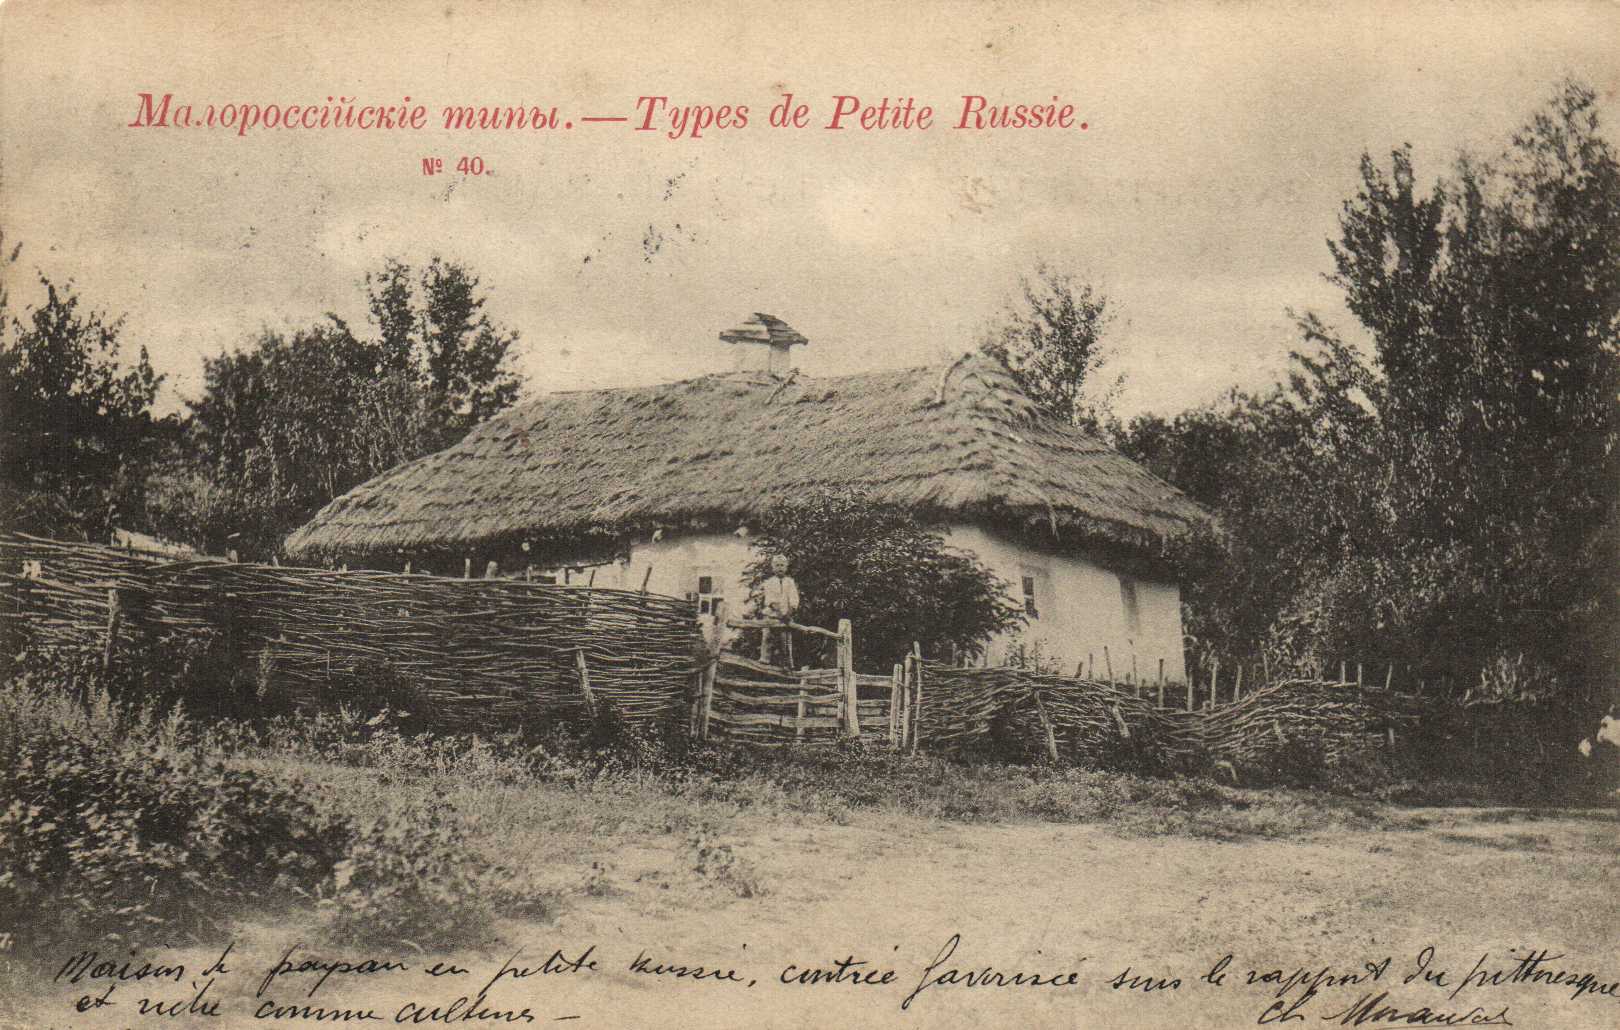 Малороссійскіе типы.—Types de Petite Russie.
№ 40.
7.
Maison de paysan en petite russie, contrée favorisée sous le rapport du pittoresque
et riche comme cultures -
Ch